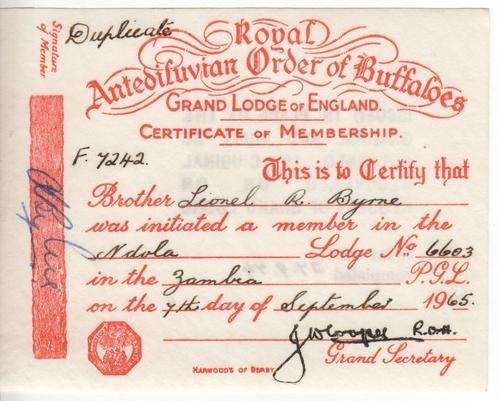 Signature
of Member
Duplicate
Royal
Antediluvian Order of Buffaloes
GRAND LODGE OF ENGLAND.
CERTIFICATE OF MEMBERSHIP.
F. 7242.
This is to Certify that
Brother Lionel R. Byrne
was initiated a member in the
Ndola Lodge No 6603
in the Zambia P.G.L.
on the 7th day of September 1965.
R.O.H.
Grand Secretary
HARWOOD'S OF DERBY